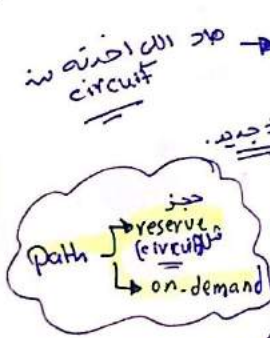 هاد اللي اخدته بـ
circuit
جديد.
حجز
path reserve
(circuit) مثل
on-demand